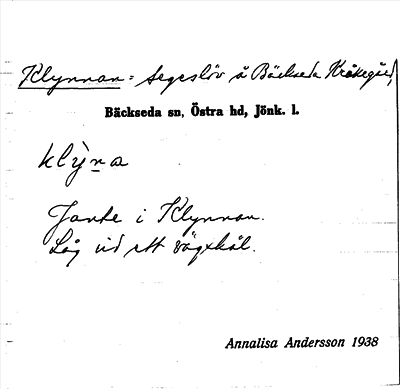 Klynnan = Segeslöv å Bäckseda Kråkegård,
Bäckseda sn, Östra hd, Jönk. l.
klỳna
Jante i Klynnan.
Låg vid ett vägskäl.
Annalisa Andersson 1938